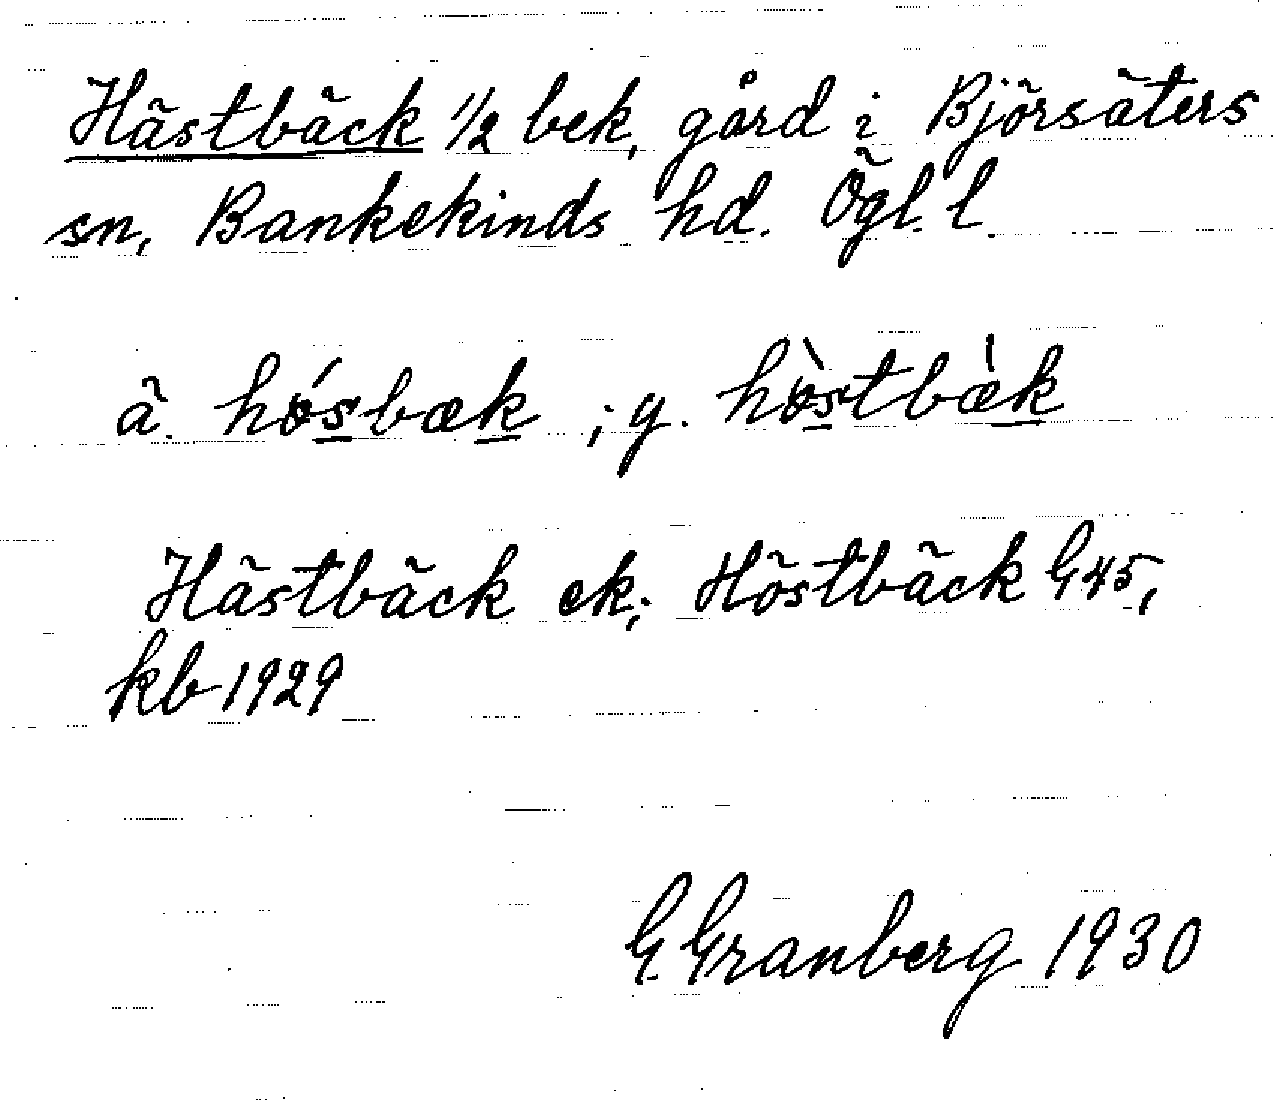 Hästbäck 1/2 bek, gård i Björsäters
sn, Bankekinds hd. Ögl. l.
ä. hósbæk ; y. hòstbæ̀k
Hästbäck ek; Höstbäck G45,
kb 1929
G. Granberg 1930